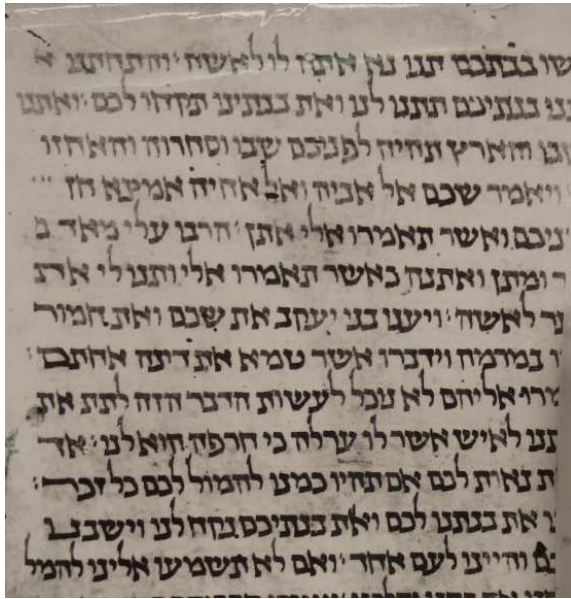 שו בבתכם תנו נא אתה לו לאשה׃ והתחתנו א
בנתיכם תתנו לנו ואת בנתינו תקחו לכם׃ ואתנו
שבו והארץ תהיה לפניכם שבו וסחרוה והאחזו
׃ ויאמר שכם אל אביה ואל אחיה אמצא חן
ניכם ואשר תאמרו אלי אתן׃ הרבו עלי מאד מ
ר ומתן ואתנה כאשר תאמרו אלי ותנו לי את
ער לאשה׃ ויענו בני יעקב את שכם ואת חמור
ו במרמה וידברו אשר טמא את דינה אחתם׃
מרו אליהם לא נוכל לעשות הדבר הזה לתת את
תנו לאיש אשר לו ערלה כי חרפה הוא לנו׃ אך
ת נאות לכם אם תהיו כמנו להמול לכם כל זכר׃
ו את בנתנו לכם ואת בנתיכם נקח לנו וישבנו
ם והיינו לעם אחד׃ ואם לא תשמעו אלינו להמל